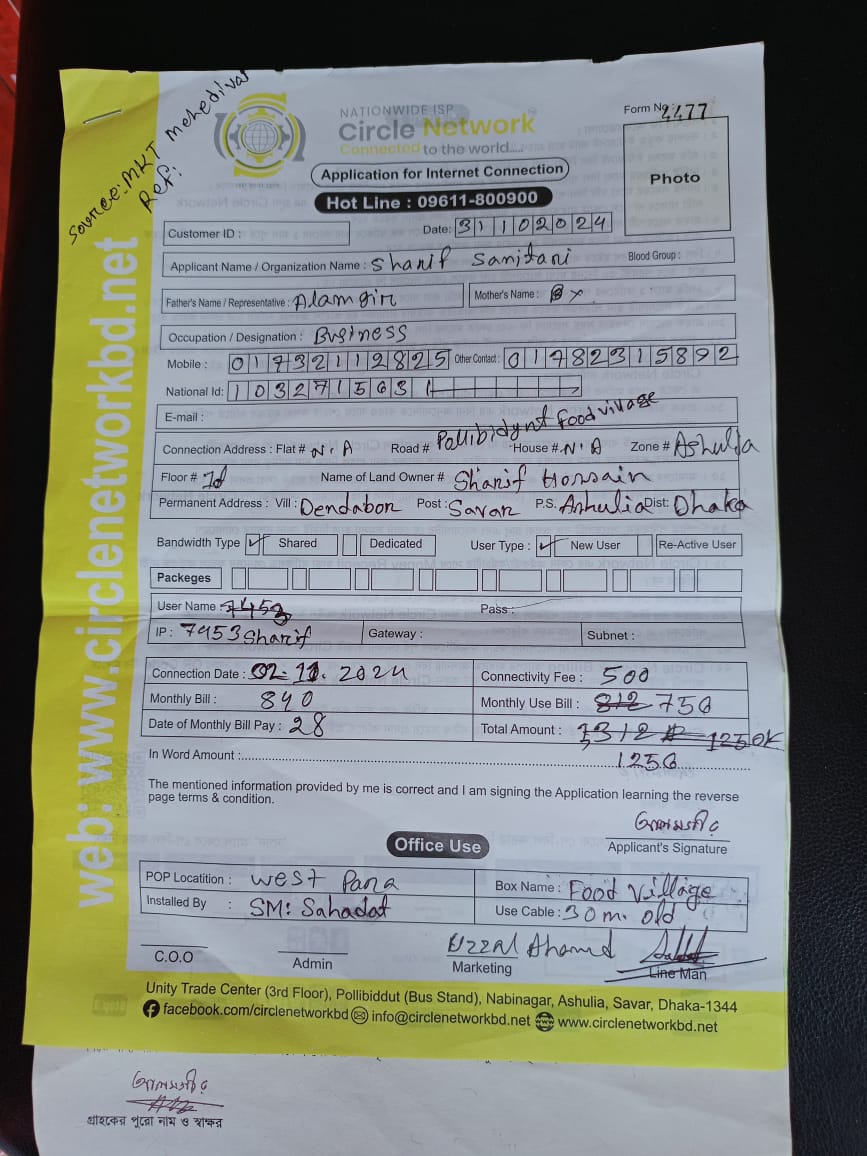 Source: MKT Mehedivai
Ref:
NATIONWIDE ISP
Circle Network
Connected to the world....
Form No 2477
Application for Internet Connection
Photo
Hot Line : 09611-800900
Customer ID :
Date: 31102024
Applicant Name / Organization Name : Sharif Sanitani Blood Group :
Father's Name / Representative : Alamgir Mother's Name : x
Occupation / Designation : Business
Mobile : 01732112825 Other Contact : 01782315892
National Id: 1032715631
E-mail :
Connection Address : Flat # N.A Road # Pallibidynt Food village House # N.A Zone # Ashulia
Floor # Name of Land Owner # Sharif Hossain
Permanent Address : Vill : Dendabor Post : Savar P.S. Ashulia Dist: Dhaka
Bandwidth Type Shared Dedicated User Type : New User Re-Active User
Packeges
User Name : 7453 Pass :
IP : 7453 Sharif Gateway : Subnet :
Connection Date : 02.11.2024 Connectivity Fee : 500
Monthly Bill : 840 Monthly Use Bill : 812 750
Date of Monthly Bill Pay : 28 Total Amount : 1312 1250K
In Word Amount :.......... 1250
The mentioned information provided by me is correct and I am signing the Application learning the reverse
page terms & condition.
আলমগীর
Applicant's Signature
Office Use
POP Locatition : West Para Box Name : Food Village
Installed By : SM: Sahadat Use Cable : 30 m. old
Uzzal Ahamed
C.O.O Admin Marketing Line Man
Unity Trade Center (3rd Floor), Pollibiddut (Bus Stand), Nabinagar, Ashulia, Savar, Dhaka-1344
facebook.com/circlenetworkbd info@circlenetworkbd.net www.circlenetworkbd.net
web: www.circlenetworkbd.net
আলমগীর
গ্রাহকের পুরো নাম ও স্বাক্ষর